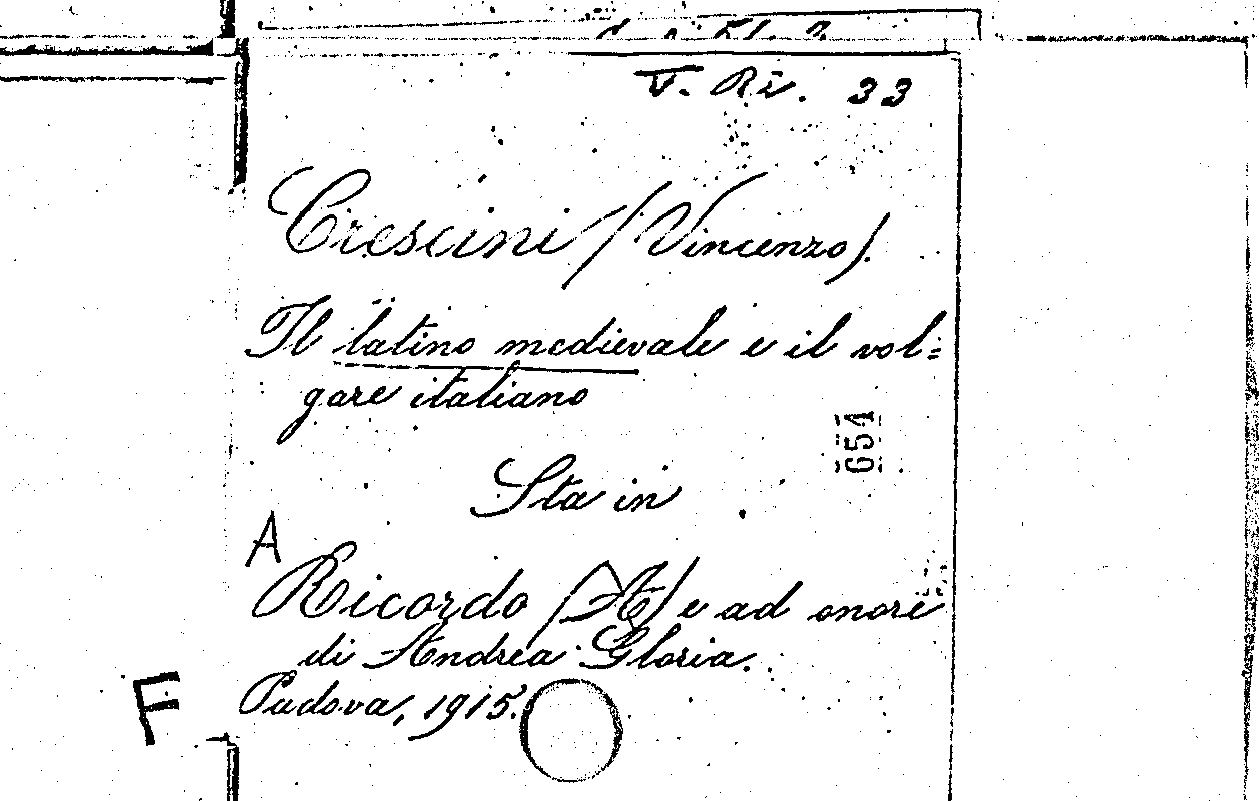 V. Ri. 33
Crescini (Vincenzo).
Il latino medievale e il vol=
gare italiano
654
Sta in
A
Ricordo (A) e ad onore
di Andrea Gloria.
F
Padova, 1915.